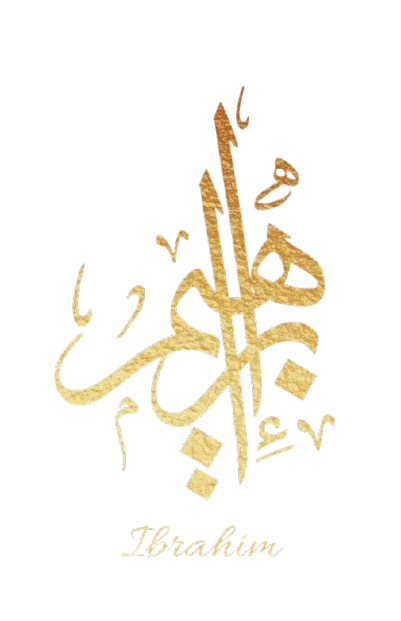 إبراهيم
Ibrahim